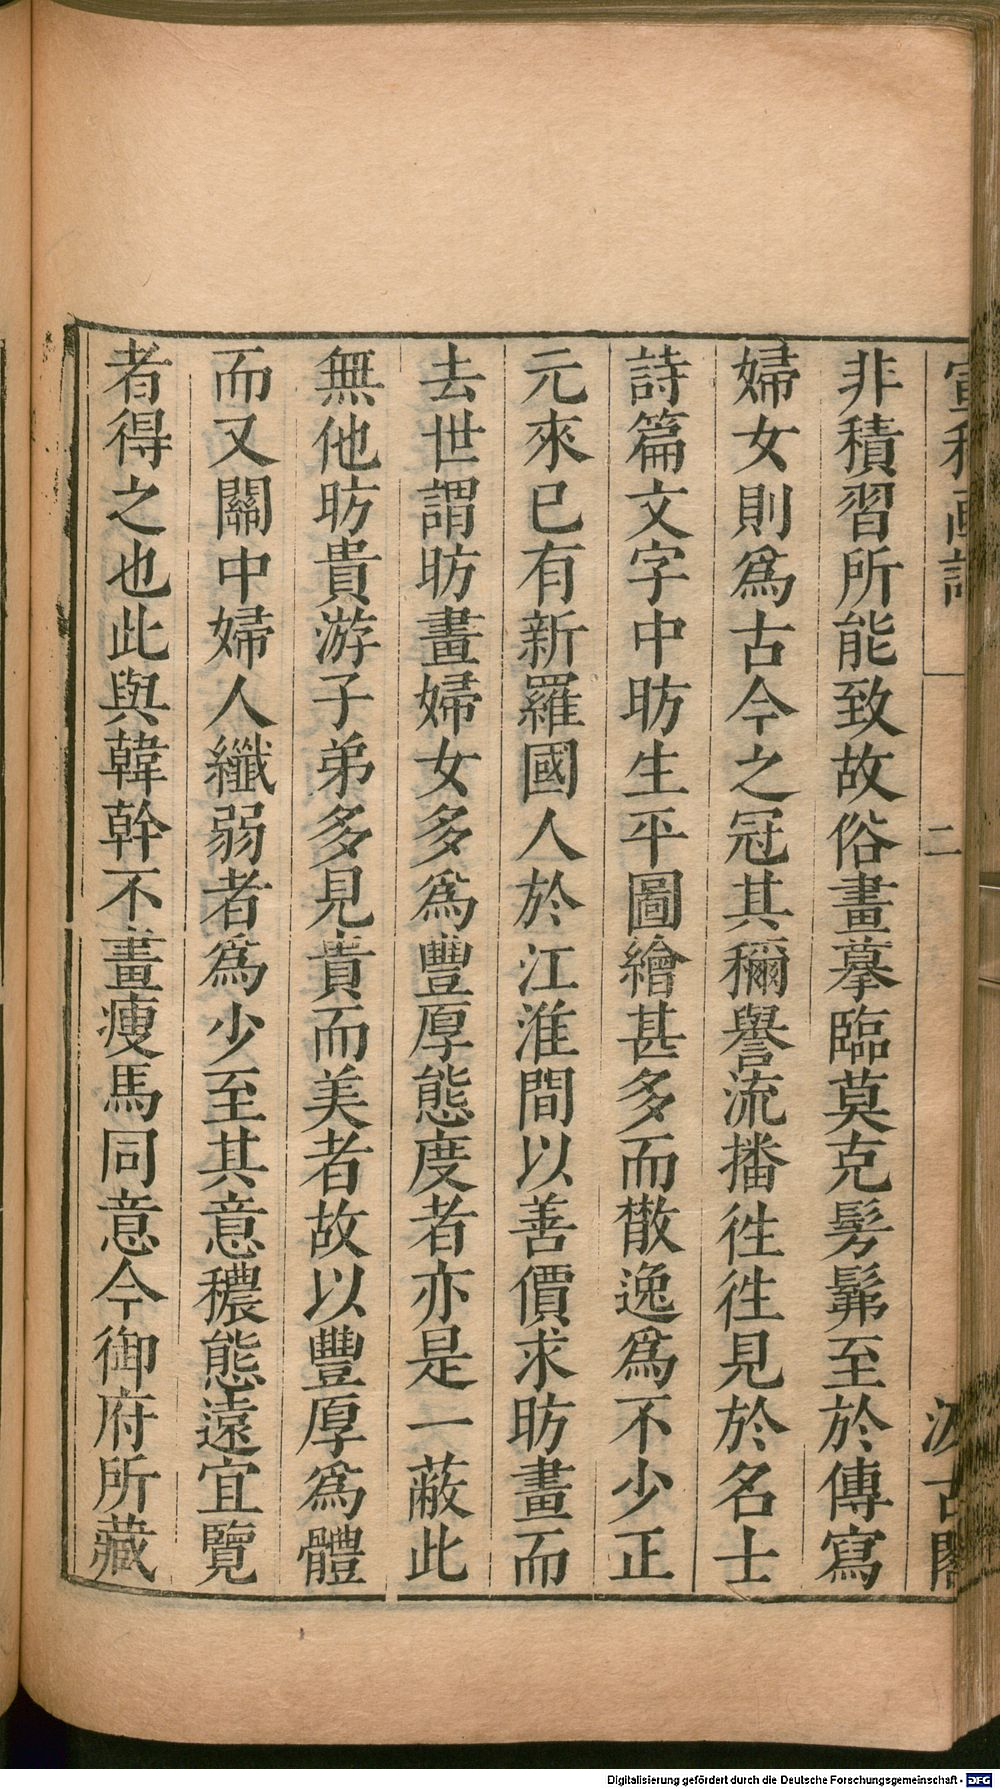 宣和画譜 二 汲古閣
非積習所能致故俗畫摹臨莫克髣髴至於傳寫
婦女則爲古今之冠其穪譽流播徃徃見於名士
詩篇文字中昉生平圖繪甚多而散逸爲不少正
元來已有新羅國人於江淮間以善價求昉畫而
去世謂昉畫婦女多爲豐厚態度者亦是一蔽此
無他昉貴游子弟多見貴而美者故以豐厚爲體
而又關中婦人纖弱者爲少至其意穠態遠宜覽
者得之也此與韓幹不畫瘦馬同意今御府所藏
Digitalisierung gefördert durch die Deutsche Forschungsgemeinschaft - DFG